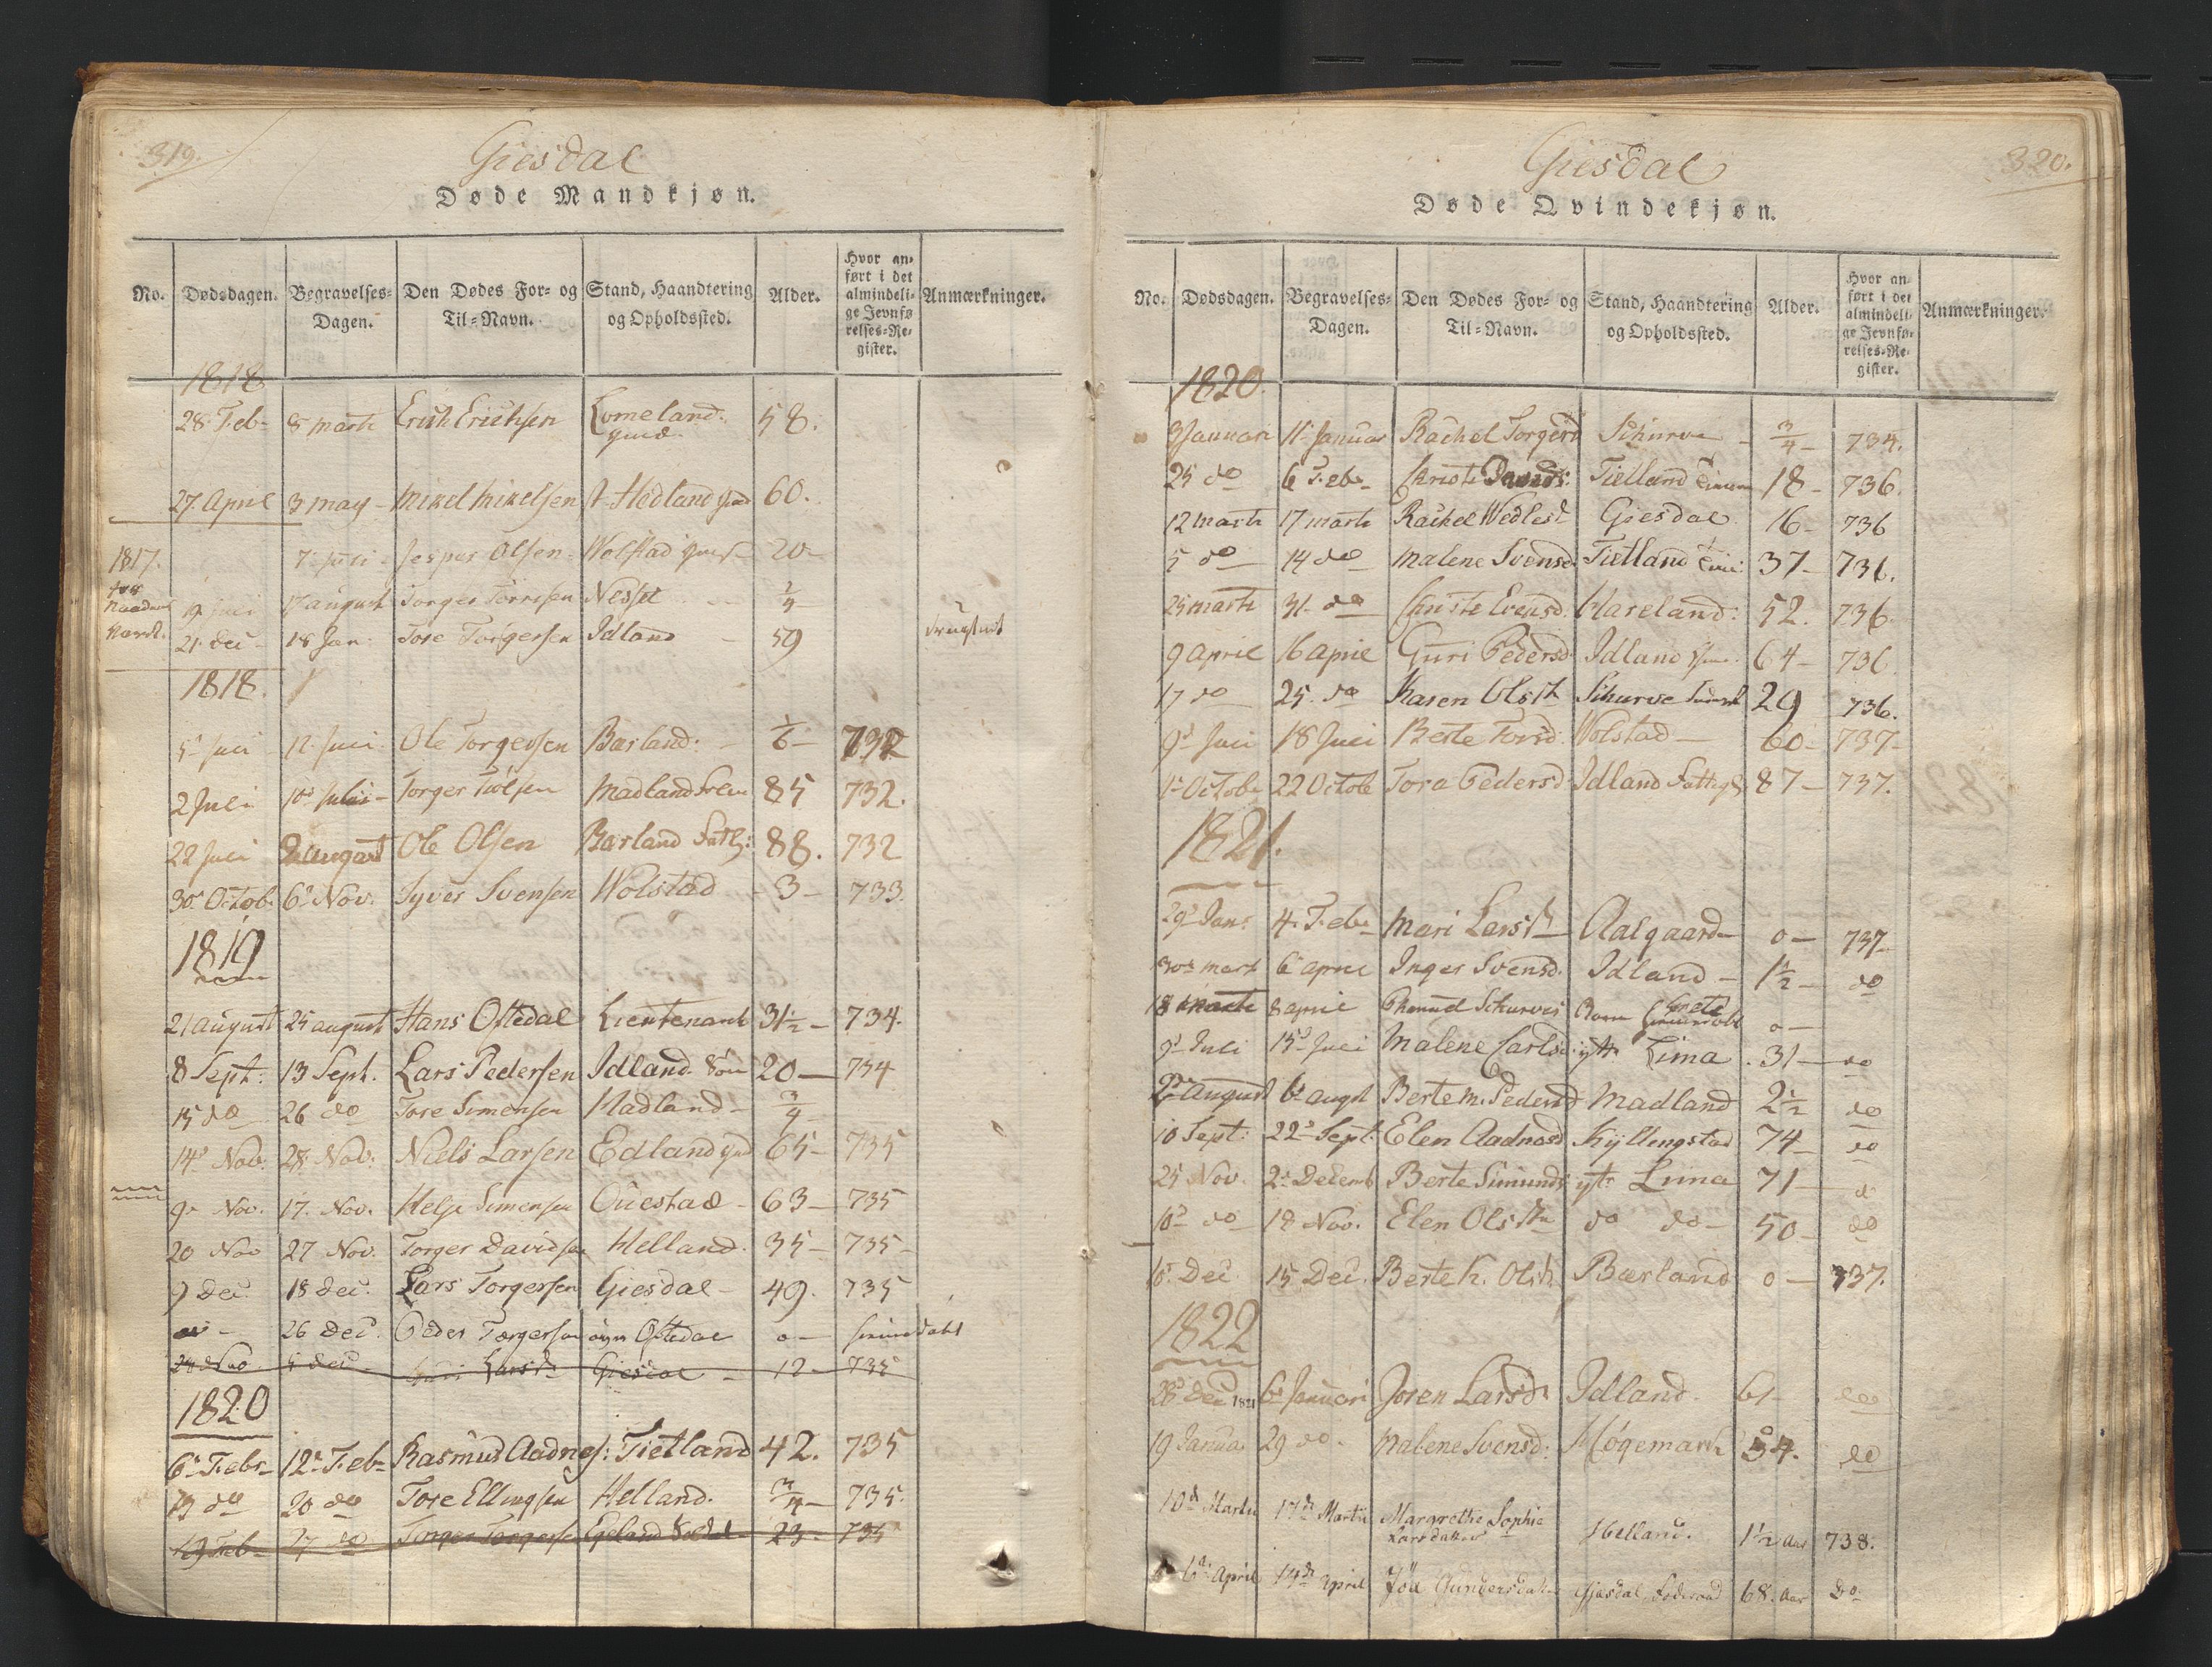 319.
Giesdal
Døde Mandkjøn.
No. Dødsdagen. Begravelses-Dagen. Den Dødes For- og Til-Navn. Stand, Haandtering og Opholdssted. Alder. Hvor anført i det almindelige Jevnførelses-Register. Anmærkninger.
1818
28 Feb 8 marti Erich Erichsen Lomeland 58.
27 April 3 may Mikel Mikelsen Hedland 60.
1817. 7 Juli Jesper Olsen Wolstad 20
9 Juli 17 august Torger Tørresen Nesset
21 Dec 18 Jan Tore Torgersen Idland 59
1818.
5 Juli 12 Juli Ole Torgersen Bærland 1/6 732
2 Juli 10 Juli Torger Madland 85 732.
22 Juli august Ole Olsen Bærland Fattig 88. 732
30 Octob 6 Nov. Syver Svensen Wolstad 3 733.
1819
21 august 25 august Hans Oftedal Lieutenant 31 1/2 734.
8 Sept: 13 Sept. Lars Pedersen Idland 20 734
15 do 26 do Tore Simensen Madland 3/4
14 Nov. 28 Nov. Niels Larsen Edland 65 735
9 Nov. 17. Nov. Helje Simensen Ouestad 63 735
20 Nov 27 Nov. Torger Davidsen Helland. 35 735
9 Dec 18 Dec. Lars Torgersen Giesdal 49. 735
26 Dec. Peder Torgersen Oftedal 0
24 Nov 5 Dec Larsd Giesdal 12 735
1820
6 Febr 12 Feb Rasmus Aadnes: Tietland 42. 735
13 do 20 do Tore Ellingsen Helland. 3/4 735.
19 Feb 27 do Torger Torgersen Egeland 23 735
320.
Giesdal
Døde Qvindekjøn.
No. Dødsdagen. Begravelses-Dagen. Den Dødes For- og Til-Navn. Stand, Haandtering og Opholdssted. Alder. Hvor anført i det almindelige Jevnførelses-Register. Anmærkninger.
1820.
3 Januari 11 Januar Rachel Torgersd Schurve 3/4 734.
25 do 6 Feb Christi Davids: Tielland 18 736.
12 marti 17 marti Rachel Giesdal 16 736
5 do 14 do Malene Svensd Tietland 37 736.
25 marti 31 do Christi Evensd. Hareland: 52. 736.
9 april 16 april Guri Pedersd Idland 64 736
17 do 25 do Karen Olsdt Schurve 29 736.
9 Juli 18 Juli Berte Torsd. Wolstad 60 737
1 Octob 22 Octob Tora Pedersd Idland Fattig 87 737.
1821.
29 Jan: 4 Feb Mari Larsdt Aalgaard 0 737
30 mart 6 april Inger Svensd. Idland 1 1/2 do
18 marti 8 april Schurves Barn 0
9 Juli 15 Juli Malene Carlsd. yttr Lima 31 do
2 August 6 augst Berte M. Pedersd Madland 2 1/2 do
10 Sept: 22 Sept: Elen Aadnasd Kyllingstad 74 do
25 Nov. 2 Decemb Berte Simunds yttr Lima 71 do
10 do 18 Nov. Elen Olsdtr do do 50 do
10 Dec 15 Dec. Berte K. Olsd. Bærland 0 737.
1822
28 Dec 1821 6 Januari Joren Larsd. Idland. do
19 Januar 29 do Malene Svensd: Høgemark 34. do
10de Martii 17de Martii Margrethe Sophie Larsdatter Helland. 1 1/2 Aar 738.
6de April 14de April Gundersdatter Gjesdal 68. Aar Do